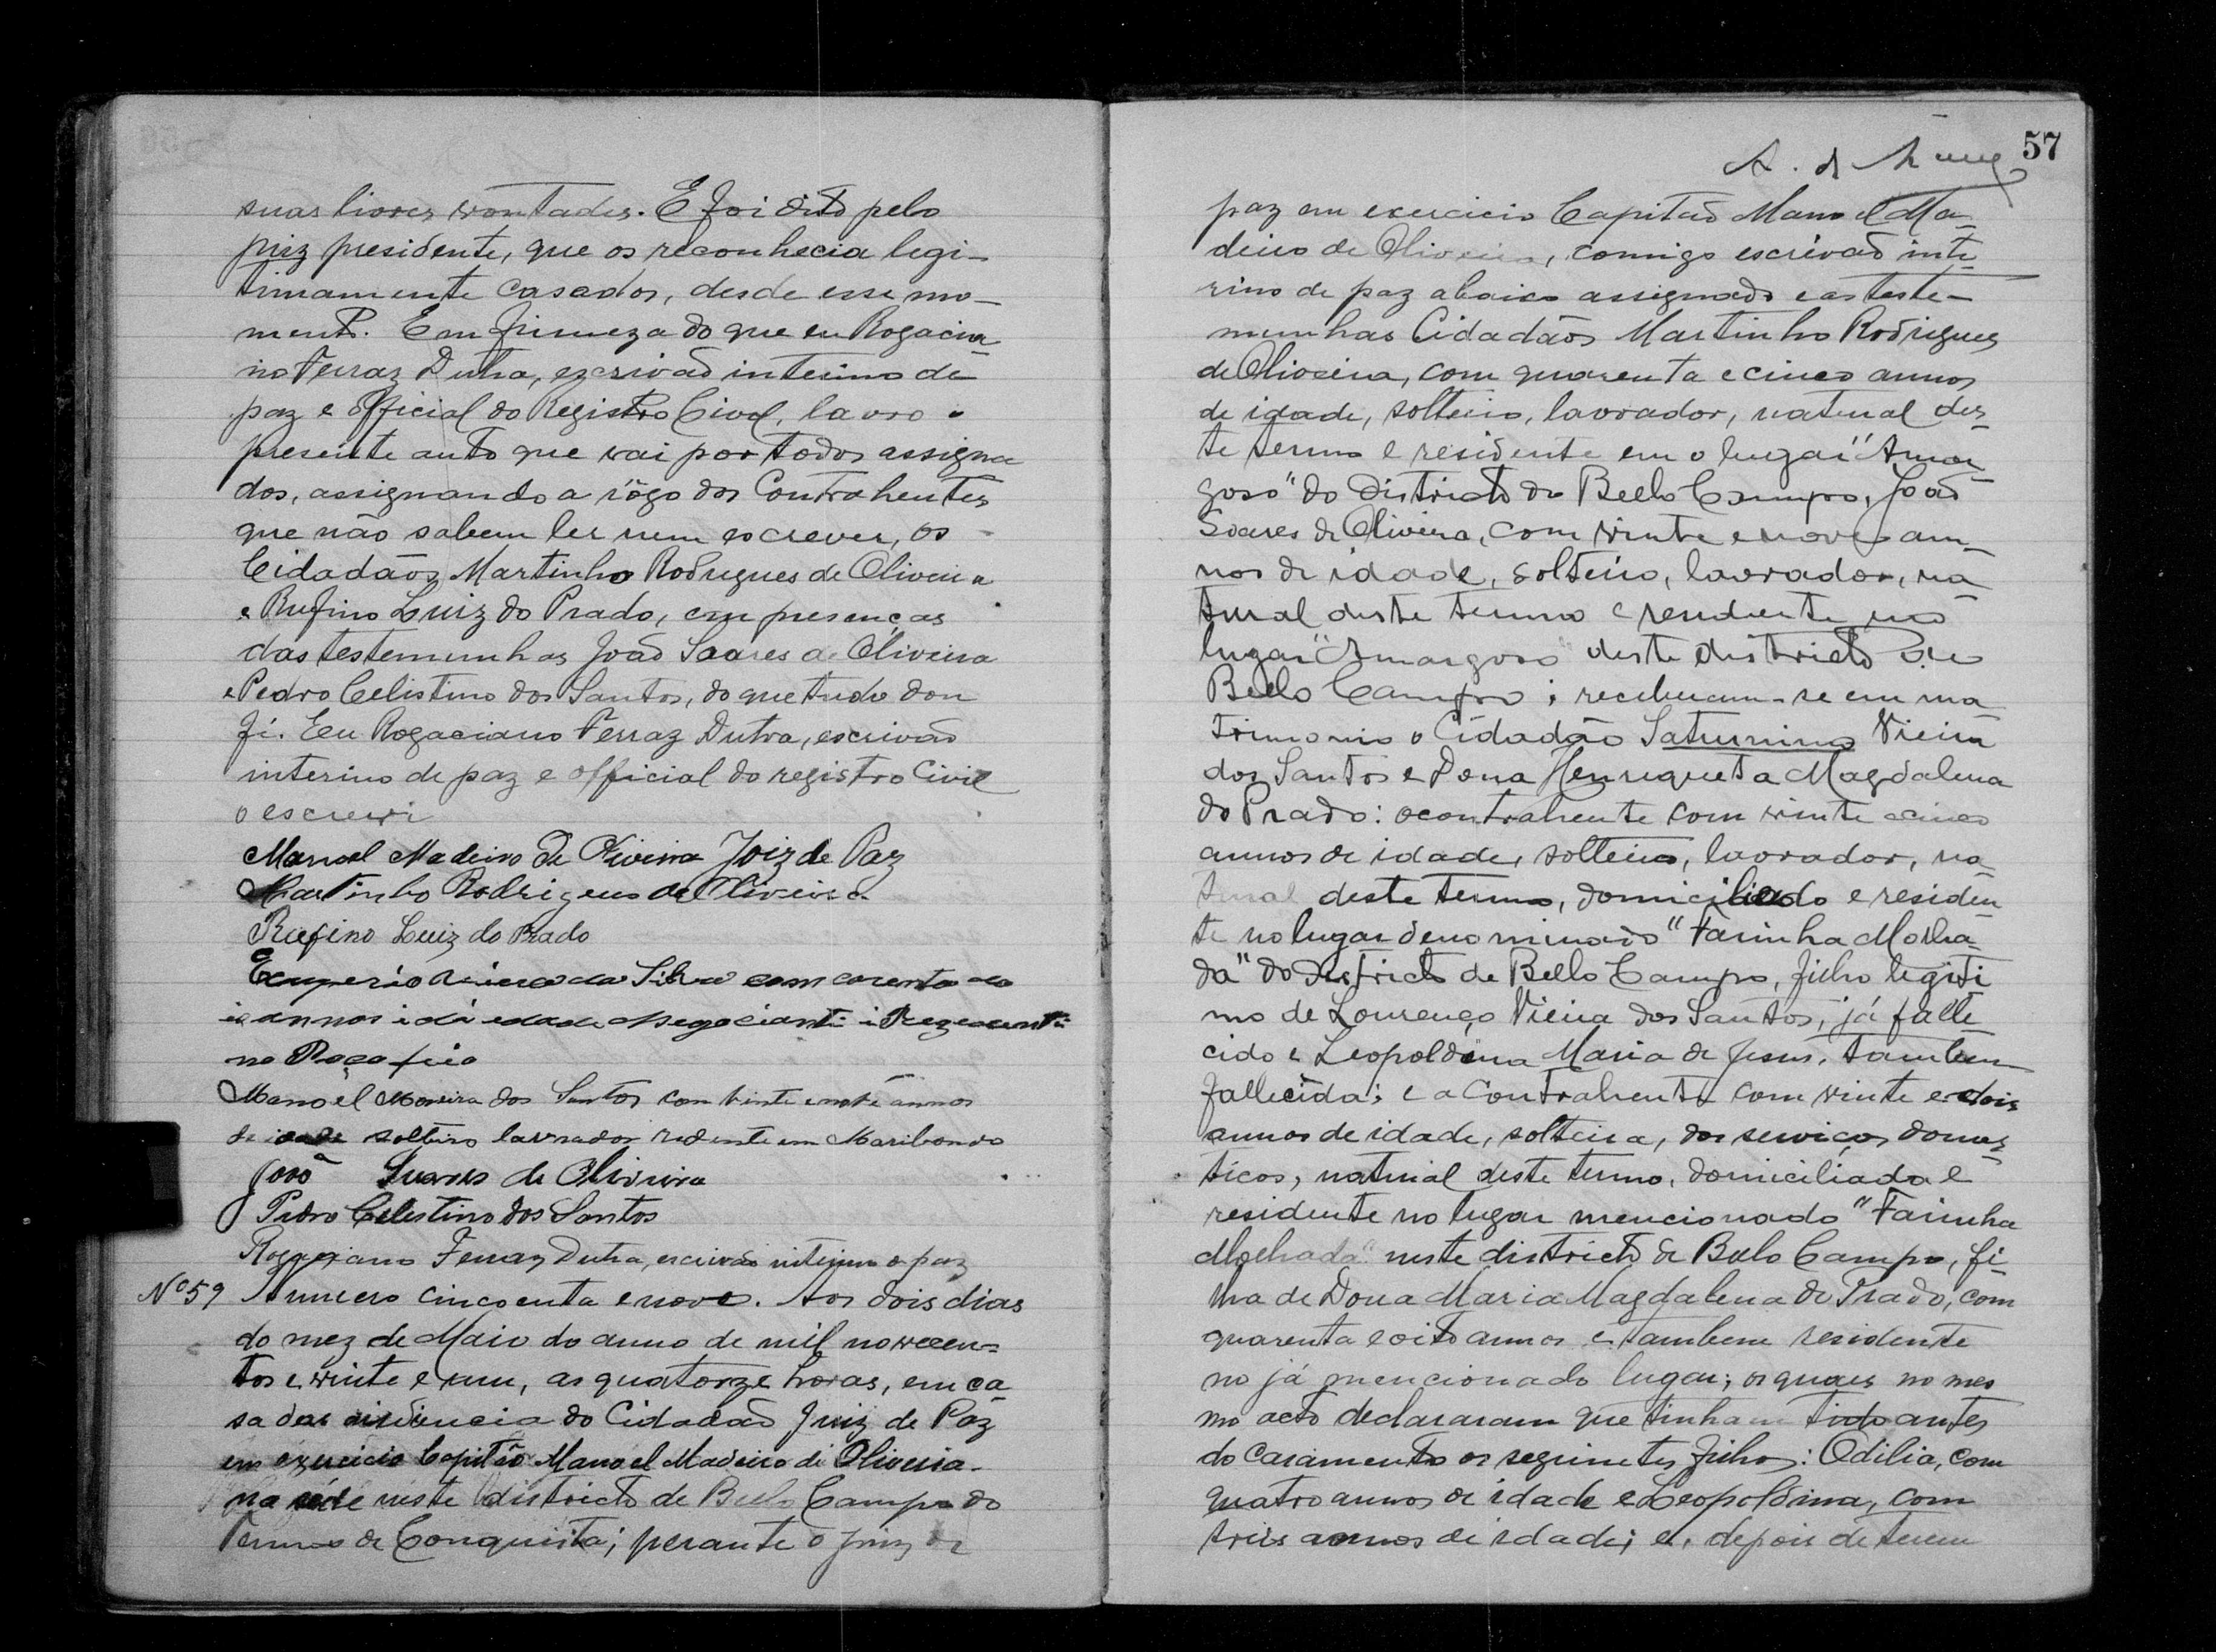 suas livres vontades. E foi dito pelo
juiz presidente, que os reconhecia legi-
timamente casados, desde esse mo-
mento. Em firmeza do que eu Rogacia-
no Ferraz Dutra, escrivão interino de
paz e official do Registro Civel, lavro o
presente auto que vai por todos assigna
dos, assignando a rôgo dos Contrahentes
que não sabem ler nem escrever, os
Cidadãos Martinho Rodrigues de Oliveira
e Rufino Luiz do Prado, em presenças
das testemunhas João Soares de Oliveira
e Pedro Celistino dos Santos, do que tudo dou
fé. Eu Rogaciano Ferraz Dutra, escrivão
interino de paz e official do registro Civil
o escrevi
Manoel Madeiro de Oliveira Joiz de Paz
Martinho Rodrigeus de Oliveira
Rufino Luiz do Prado
Exuperio da Silva com corenta
annos i dá edade Negocianti i Rezedenti
no
Manoel Moreira dos Santos com vinte e nove annos
de idade solteiro lavrador redente em Maribondo
João Suares de Oliveira
Pedro Celestino dos Santos
Rogaciano Ferraz Dutra, escrivão interino de paz
Nº 59 Numero cincoenta e nove. Aos dois dias
do mez de Maio do anno de mil novecen-
tos e vinte e um, as quatorze horas, em ca
sa das audiencia do Cidadão Juiz de Paz
em exercicio Capitão Manoel Madeiro de Oliveira
na séde neste districto de Bello Campo do
Termo de Conquista; perante o juiz de
57
A. de
paz em exercicio Capitão Manoel Ma-
deiro de Oliveira, comigo escrivão inte-
rino de paz abaixo assignado e as teste-
munhas Cidadãos Martinho Rodrigues
de Oliveira, com quarenta e cinco annos
de idade, solteiro, lavrador, natural des-
te termo e residente em o lugar "Amar-
goso" do districto de Bello Campo, João
Soares de Oliveira, com vinte e nove an-
nos de idade, solteiro, lavrador, na-
tural deste termo e residente no
lugar "Amargoso" deste districto de
Bello Campo; receberam-se em ma
trimonio o Cidadão Saturnino Vieira
dos Santos e Dona Henriqueta Magdalena
do Prado: o contrahente com vinte e cinco
annos de idade, solteiro, lavrador, na
tural deste termo, domiciliado e residen
te no lugar denominado "Farinha Molha-
da" do districto de Bello Campo, filho legiti
mo de Lourenço Vieira dos Santos, já falle
cido e Leopoldina Maria de Jesus, tambem
fallecida; e a Contrahente com vinte e dois
annos de idade, solteira, dos serviços domes
ticos, natural deste termo, domiciliada e
residente no lugar mencionado "Farinha
Molhada" neste districto de Bello Campo, fi-
lha de Dona Maria Magdalena do Prado, com
quarenta e oito annos e tambem residente
no já mencionado lugar; os quaes no mes
mo acto declararam que tinham tido antes
do casamento os seguinetes filhos: Odilia, com
quatro annos de idade e Leopoldina, com
tres annos de idade; e, depois de terem